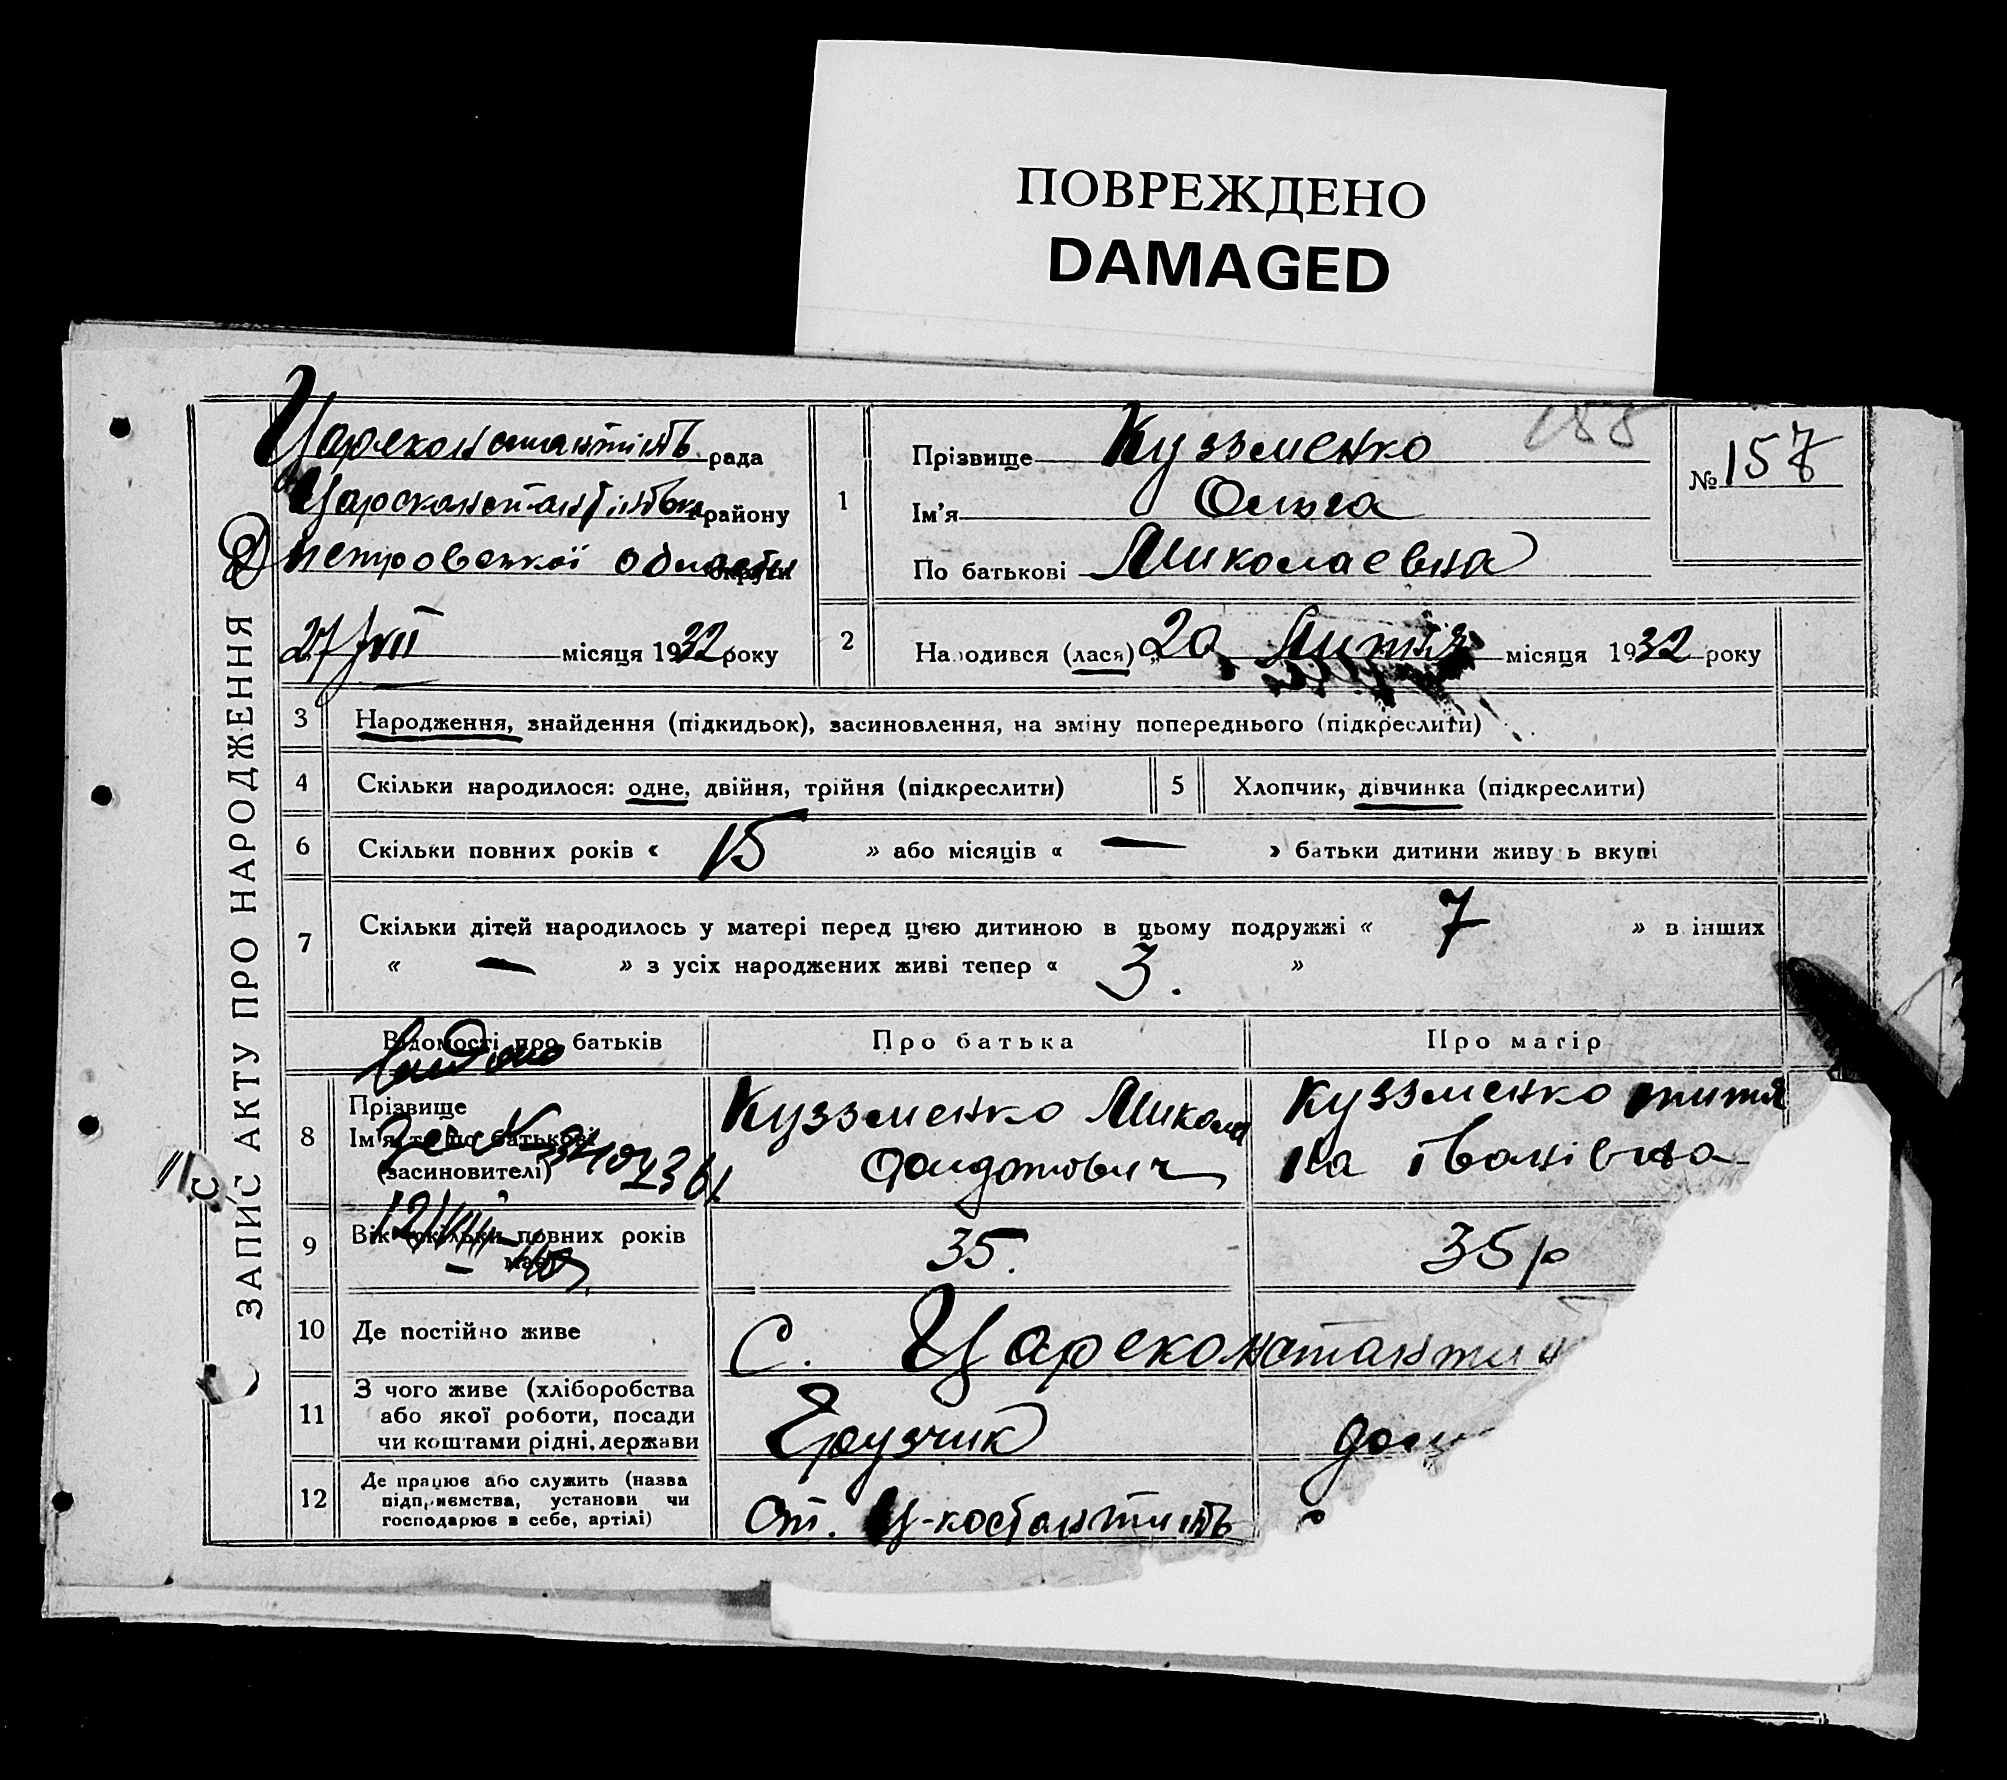 ПОВРЕЖДЕНО
DAMAGED
Цареконстантинів. рада
Царсконстантинівськ району
Дніпровської області округи
27/VII місяця 1932 року
1
Прізвище Кузьменко
Ім'я Ольга
По батькові Миколаевна
188
№ 157
2
Народився (лася) „20 липня місяця 1932 року
ЗАПИС АКТУ ПРО НАРОДЖЕННЯ
3 Народження, знайдення (підкидьок), засиновлення, на зміну попереднього (підкреслити)
4 Скільки народилося: одне, двійня, трійня (підкреслити) 5 Хлопчик, дівчинка (підкреслити)
6 Скільки повних років « 15 » або місяців « — » батьки дитини живуть вкупі
7 Скільки дітей народилось у матері перед цією дитиною в цьому подружжі « 7 » в інших
« — » з усіх народжених живі тепер « 3. »
Відомості про батьків Про батька Про матір
8 Прізвище
Ім'я та по батькові
(засиновителі)
Кузьменко Микола
Кузьменко
на Іванівна
9 Вік скільки повних років
має
35. 35 р
10 Де постійно живе с. Цареконстантин
11 З чого живе (хліборобства
або якої роботи, посади
чи коштами рідні, держави
Грузчик
12 Де працює або служить (назва
підприємства, установи чи
господарює в себе, артілі)
Ст. Ц-костянтинів